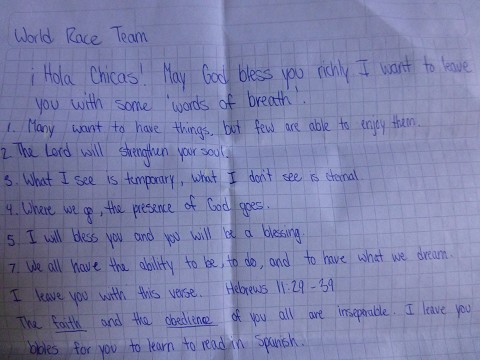 World Race Team
¡Hola Chicas! May God bless you richly I want to leave
you with some 'words of breath'.
1. Many want to have things, but few are able to enjoy them.
2. The Lord will strengthen your soul.
3. What I see is temporary, what I don't see is eternal
4. Where we go, the presence of God goes.
5. I will bless you and you will be a blessing.
7. We all have the ability to be, to do, and to have what we dream.
I leave you with this verse. Hebrews 11:29-39
The faith and the obedience of you all are inseparable. I leave you
bibles for you to learn to read in Spanish.